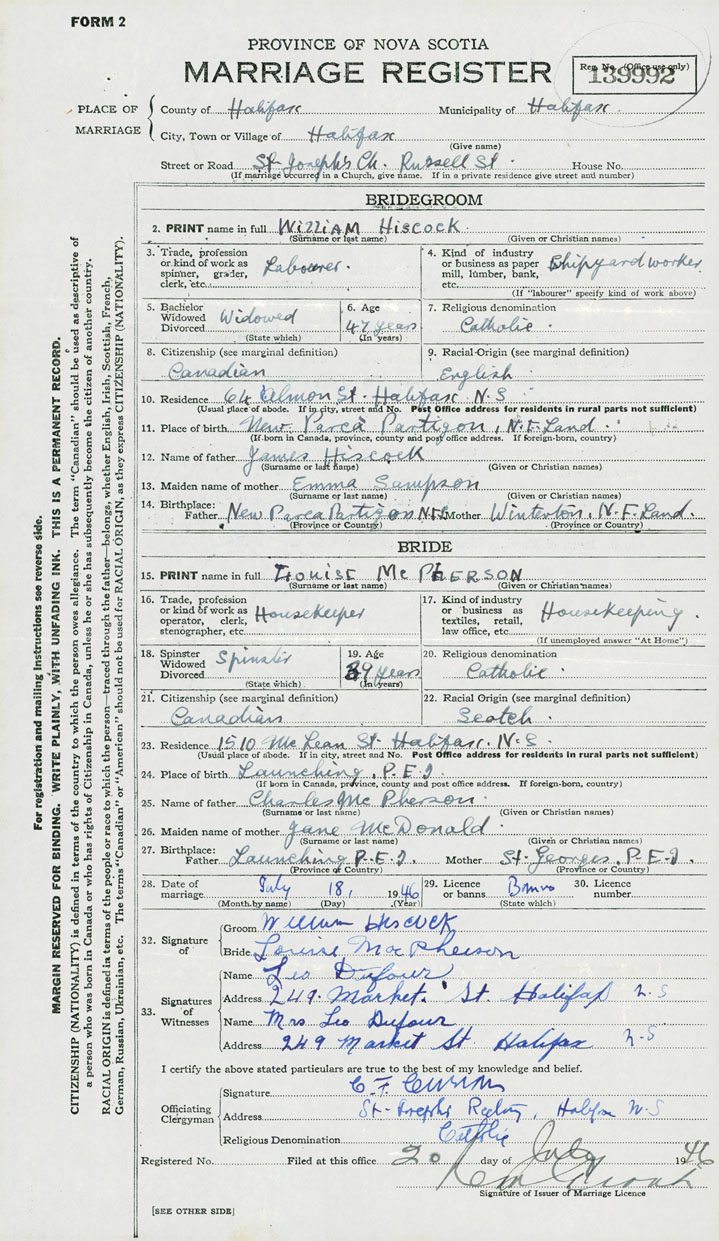 FORM 2
PROVINCE OF NOVA SCOTIA
MARRIAGE REGISTER
Reg. No. (Office use only)
139992
PLACE OF MARRIAGE
County of Halifax Municipality of Halifax
City, Town or Village of Halifax
(Give name)
Street or Road St. Joseph's Ch. Russell St. House No.
(If marriage occurred in a Church, give name. If in a private residence give street and number)
BRIDEGROOM
2. PRINT name in full William Hiscock
(Surname or last name) (Given or Christian names)
3. Trade, profession or kind of work as spinner, grader, clerk, etc. Labourer.
4. Kind of industry or business as paper mill, lumber, bank, etc. Shipyard worker
(If "labourer" specify kind of work above)
5. Bachelor Widowed Divorced Widowed
(State which)
6. Age 47 years
(In years)
7. Religious denomination
Catholic.
8. Citizenship (see marginal definition)
Canadian
9. Racial Origin (see marginal definition)
English
10. Residence 64 Almon St. Halifax N.S
(Usual place of abode. If in city, street and No. Post Office address for residents in rural parts not sufficient)
11. Place of birth New Parca Partigon, N.F. Land.
(If born in Canada, province, county and post office address. If foreign-born, country)
12. Name of father James Hiscock
(Surname or last name) (Given or Christian names)
13. Maiden name of mother Emma Sampson
(Surname or last name) (Given or Christian names)
14. Birthplace:
Father New Parca Partigon Mother Winterton, N.F. Land.
(Province or Country) (Province or Country)
BRIDE
15. PRINT name in full Louise McPherson
(Surname or last name) (Given or Christian names)
16. Trade, profession or kind of work as operator, clerk, stenographer, etc. Housekeeper
17. Kind of industry or business as textiles, retail, law office, etc. Housekeeping.
(If unemployed answer "At Home")
18. Spinster Widowed Divorced Spinster
(State which)
19. Age 39 years
(In years)
20. Religious denomination
Catholic.
21. Citizenship (see marginal definition)
Canadian
22. Racial Origin (see marginal definition)
Scotch.
23. Residence 1510 McLean St. Halifax. N.S.
(Usual place of abode. If in city, street and No. Post Office address for residents in rural parts not sufficient)
24. Place of birth Launching, P.E.I.
(If born in Canada, province, county and post office address. If foreign-born, country)
25. Name of father Charles McPherson.
(Surname or last name) (Given or Christian names)
26. Maiden name of mother Jane McDonald.
(Surname or last name) (Given or Christian names)
27. Birthplace:
Father Launching P.E.I. Mother St. Georges, P.E.I.
(Province or Country) (Province or Country)
28. Date of marriage July 18, 1946
(Month by name) (Day) (Year)
29. Licence or banns
(State which)
30. Licence number
32. Signature of
Groom William Hiscock
Bride Louise MacPherson
33. Signatures of Witnesses
Name Leo Dufour
Address 249 Market St. Halifax N.S
Name Mrs Leo Dufour
Address 249 Market St. Halifax N.S
I certify the above stated particulars are true to the best of my knowledge and belief.
Officiating Clergyman
Signature
Address St. Josephs Halifax N.S
Religious Denomination Catholic
Registered No. Filed at this office 20 day of July 1946
Signature of Issuer of Marriage Licence
[SEE OTHER SIDE]
For registration and mailing instructions see reverse side.
MARGIN RESERVED FOR BINDING. WRITE PLAINLY, WITH UNFADING INK. THIS IS A PERMANENT RECORD.
CITIZENSHIP (NATIONALITY) is defined in terms of the country to which the person owes allegiance. The term "Canadian" should be used as descriptive of
a person who was born in Canada or who has rights of Citizenship in Canada, unless he or she has subsequently become the citizen of another country.
RACIAL ORIGIN is defined in terms of the people or race to which the person—traced through the father—belongs, whether English, Irish, Scottish, French,
German, Russian, Ukrainian, etc. The terms "Canadian" or "American" should not be used for RACIAL ORIGIN, as they express CITIZENSHIP (NATIONALITY).